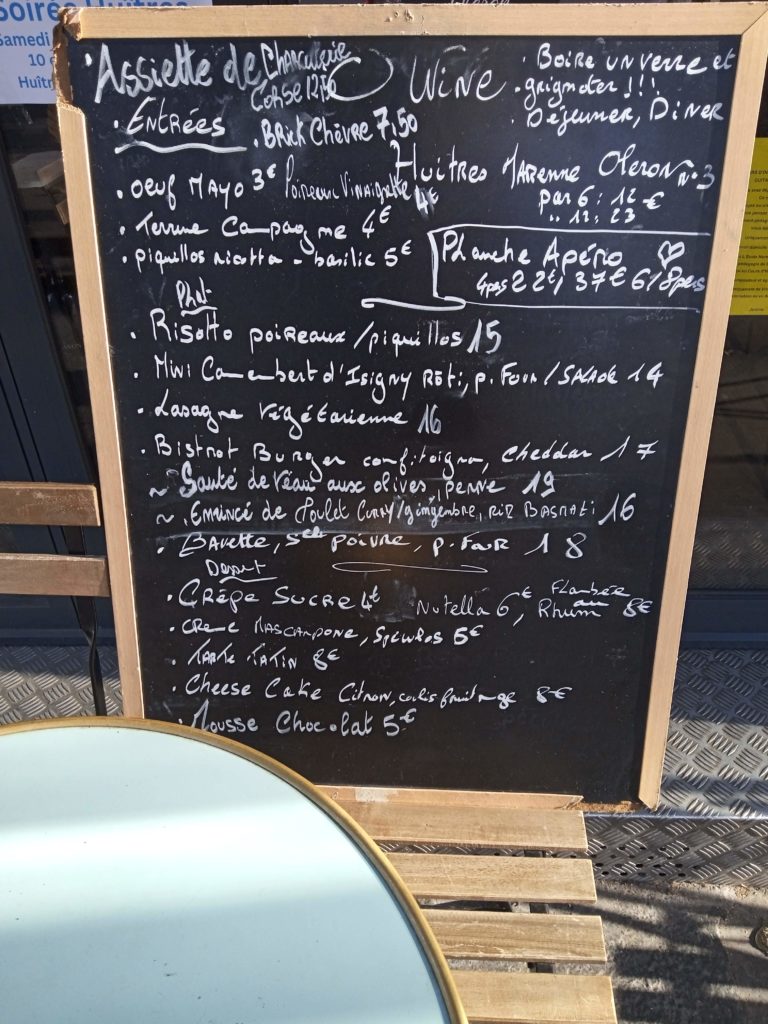 Soirée Huîtres
Samedi
10
Huîtr
Assiette de Charcuterie Corse 12,50
O Wine
• Boire un verre et
• grignoter !!!
• Déjeuner, Diner
• Entrées
• Brick Chèvre 7,50
Huitres Marenne Oleron n°3
par 6 : 12 €
" 12 : 23
• Oeuf Mayo 3€ Poireaux Vinaigrette 4€
• Terrine Campagne 4€
• Piquillos ricotta - basilic 5€
Planche Apéro
4pers 22€, 37€ 6/8pers
Plat
• Risotto poireaux/piquillos 15
• Mini Camembert d'Isigny Rôti, p. Four/Salade 14
• Lasagne Végétarienne 16
• Bistrot Burger confit oignon, cheddar 17
~ Sauté de Veau aux olives, penne 19
~ Emincé de Poulet Curry/gingembre, riz Basmati 16
• Bavette, sce poivre, p. Four 18
Dessert
• Crêpe Sucre 4€ Nutella 6€, Flambée au Rhum 8€
• Creme Mascarpone, Speculos 5€
• Tarte Tatin 8€
• Cheese Cake Citron, coulis fruit rouge 8€
• Mousse Chocolat 5€